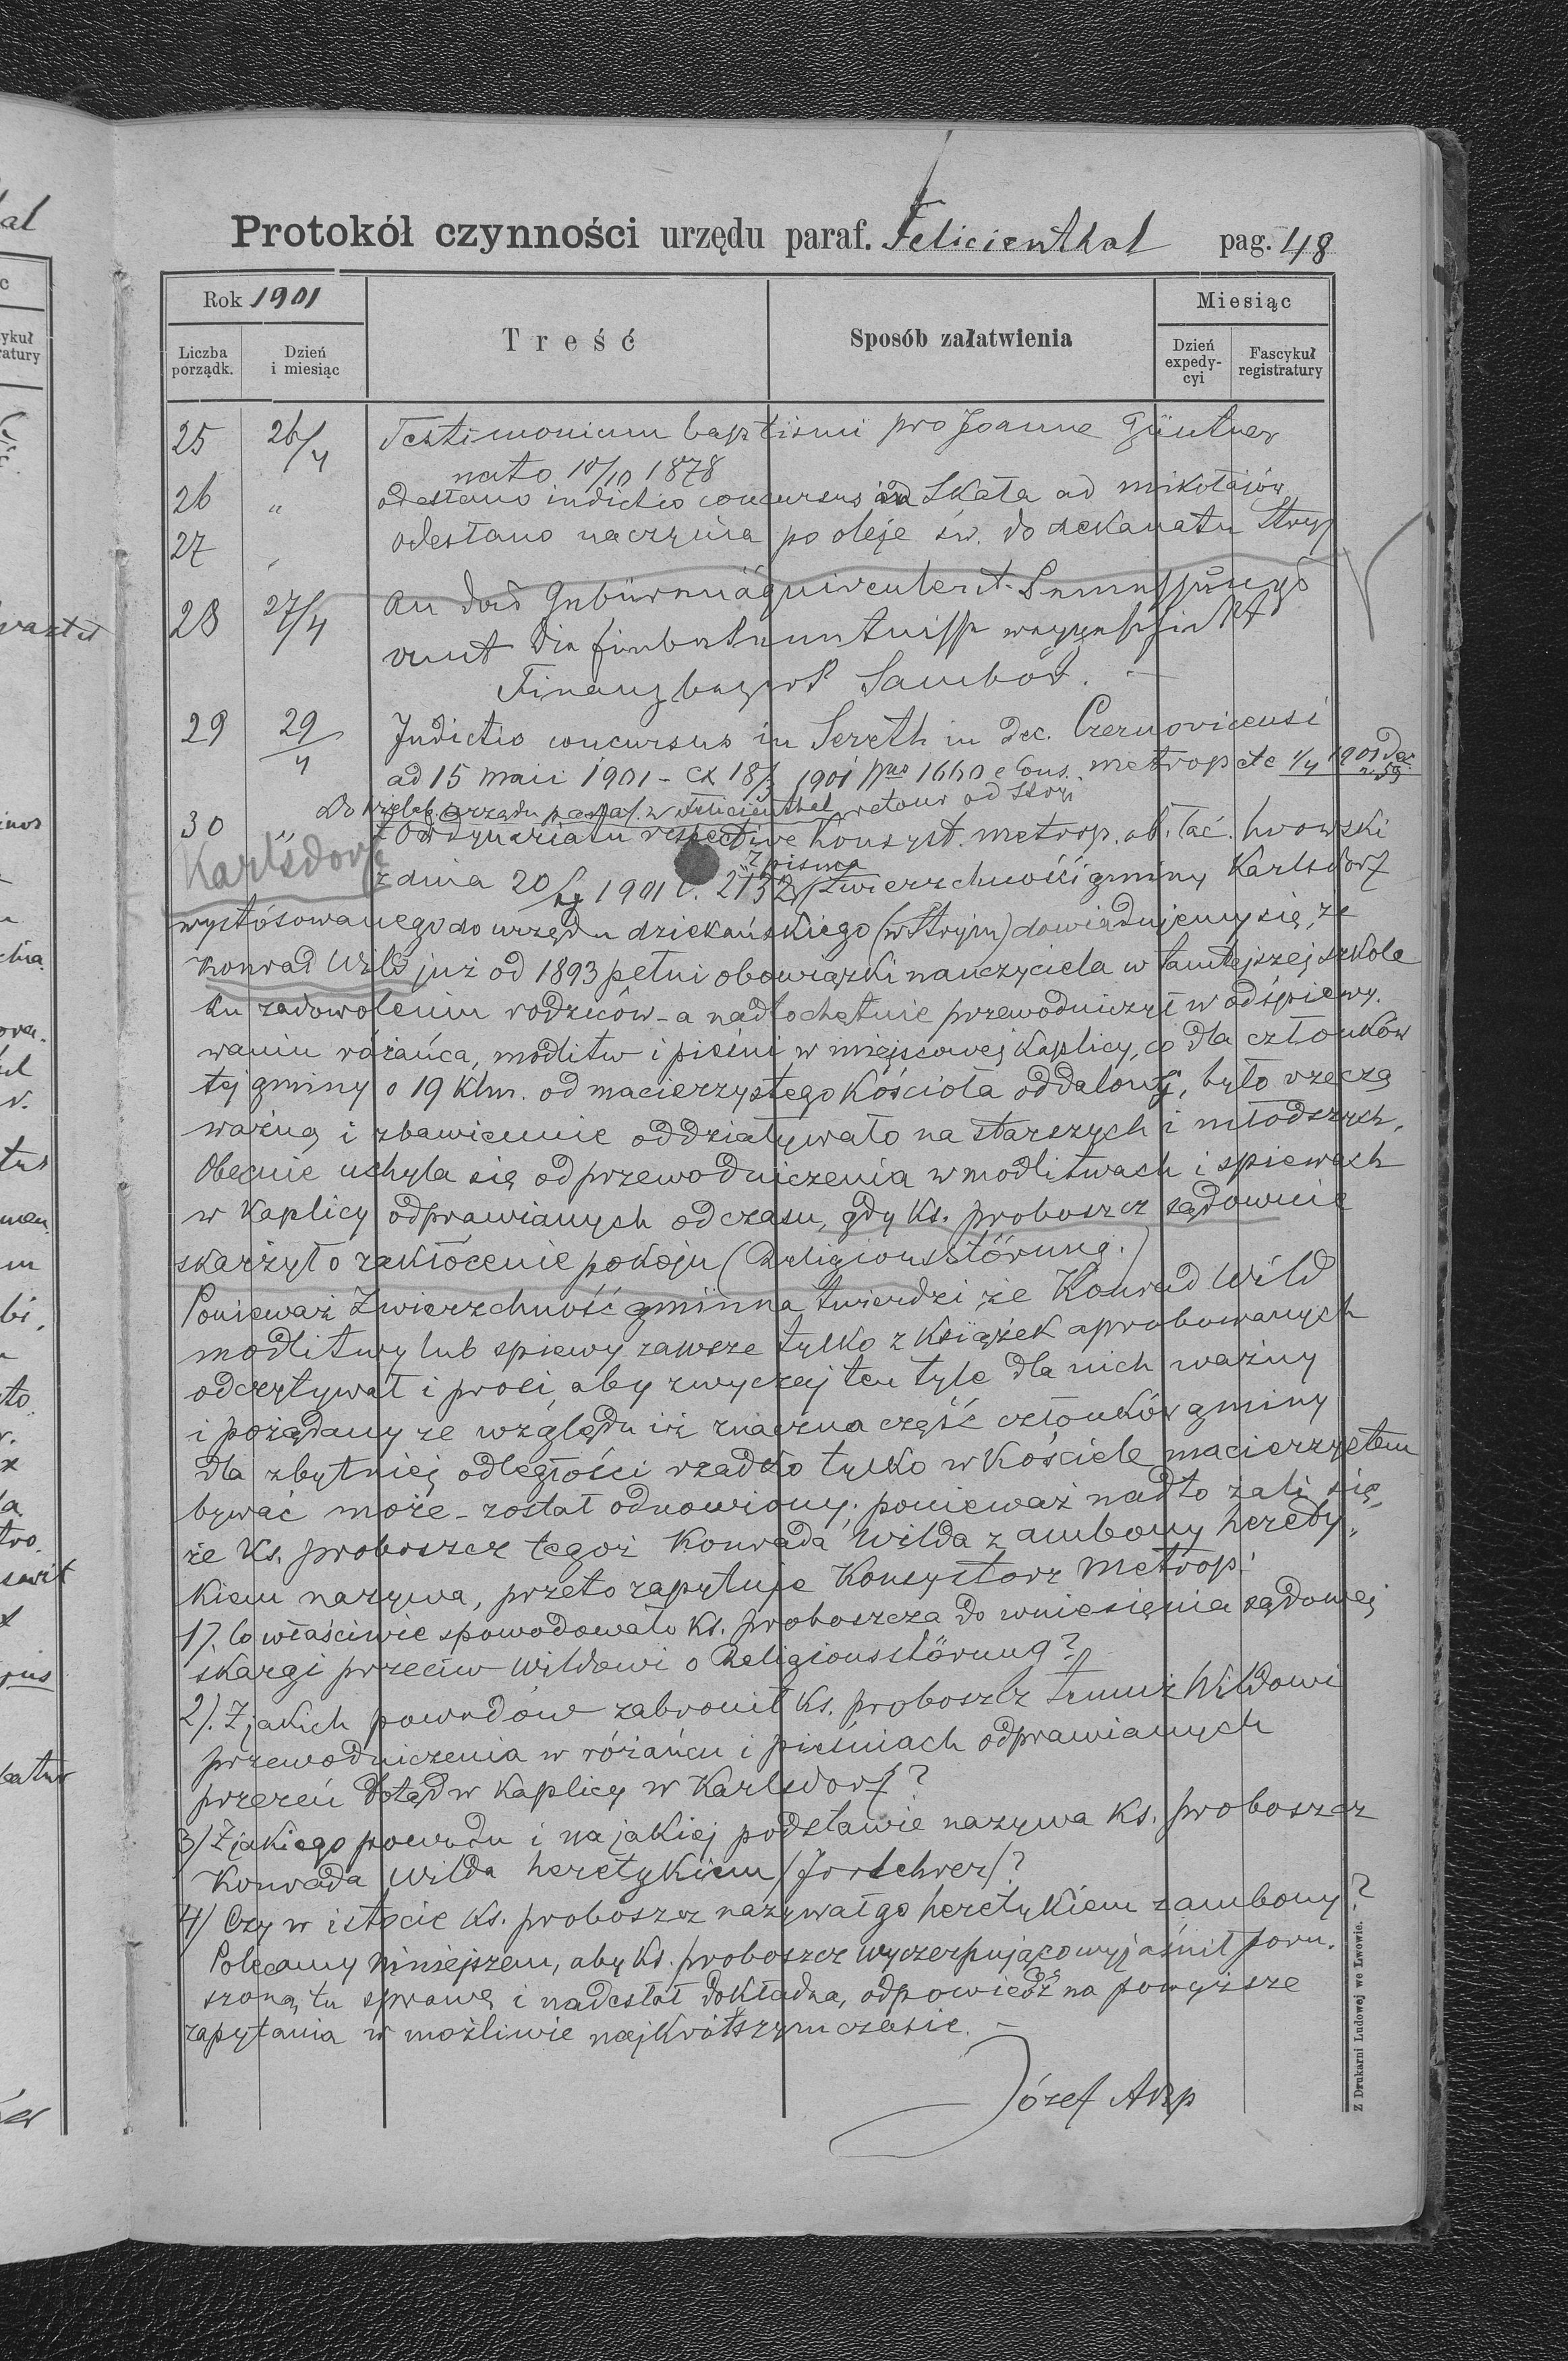 Protokół czynności urzędu paraf. Felicienthal pag. 48
Rok 1901
Miesiąc
Liczba porządk.
Dzień i miesiąc
Treść
Sposób załatwienia
Dzień expedy-cyi
Fascykuł registratury
25 26/4 Testimonium baptismi pro Joanne Güntner
nato 10/10 1878
26 " odesłano indictio concursus ad Skała ad Mikołajów
27 " odesłano naczynia po oleje św. do dekanatu Stryj
28 27/4 An das
und die
Finanzbezirk Sambor. —
29 29/4 Indictio concursus in Sereth in Dec. Czernovicensi
ad 15 maii 1901 – ex 18/3 1901 nro 1660 e Cons. metrop etc 1/4 1901 Dec.
Do Wieleb. Urzędu paraf. w Felicienthal retour od Stryj
30 " Z Ordynariatu respective Konsyst. metrop. ob. łać. lwowski
Karlsdorf
z dnia 20/4 1901 l. 2132 "Z pisma Zwierzchności gminy Karlsdorf
wystósowanego do urzędu dziekańskiego (w Stryju) dowiadujemy się, że
Konrad Wild już od 1893 pełni obowiązki nauczyciela w tamtejszej szkole
ku zadowoleniu rodziców – a nadto chętnie przewodniczył w odśpiewy-
waniu różańca, modlitw i pieśni w miejscowej Kaplicy, co dla członków
tej gminy o 19 Klm. od macierzystego Kościoła oddalonej, było rzeczą
ważną i zbawiennie oddziaływało na starszych i młodszych.
Obecnie uchyla się od przewodniczenia w modlitwach i spiewach
w Kaplicy odprawianych od czasu, gdy Ks. proboszcz sądownie
skarżył o zakłócenie pokoju (Religionsstörung.)
Ponieważ Zwierzchność gminna twierdzi, że Konrad Wild
modlitwy lub spiewy zawsze tylko z Książek aprobowanych
odczytywał i prosi, aby zwyczaj ten tyle dla nich ważny
i pożądany ze względu iż znaczna część członków gminy
dla zbytniej odległości rzadko tylko w Kościele macierzystem
bywać może – został odnowiony; ponieważ nadto żali się,
że Ks. proboszcz tegoż Konrada Wilda z ambony herety-
kiem nazywa, przeto zapytuje Konsystorz Metrop:
1). Co właściwie spowodowało Ks. proboszcza do wniesienia sądowej
skargi przeciw Wildowi o Religionsstörung?
2). Z jakich powodów zabronił Ks. proboszcz temuż Wildowi
przewodniczenia w różańcu i pieśniach odprawianych
przezeń dotąd w Kaplicy w Karlsdorf?
3) Z jakiego powodu i na jakiej podstawie nazywa Ks. proboszcz
Konrada Wilda heretykiem (Irrlehrer)?
4) Czy w istocie Ks. proboszcz nazywał go heretykiem z ambony?
Polecamy niniejszem, aby Ks. proboszcz wyczerpująco wyjaśnił poru-
szoną tu sprawę i nadesłał dokładną odpowiedź na powyższe
zapytania w możliwie najkrótszym czasie. –
Józef Abp
Z Drukarni Ludowej we Lwowie.